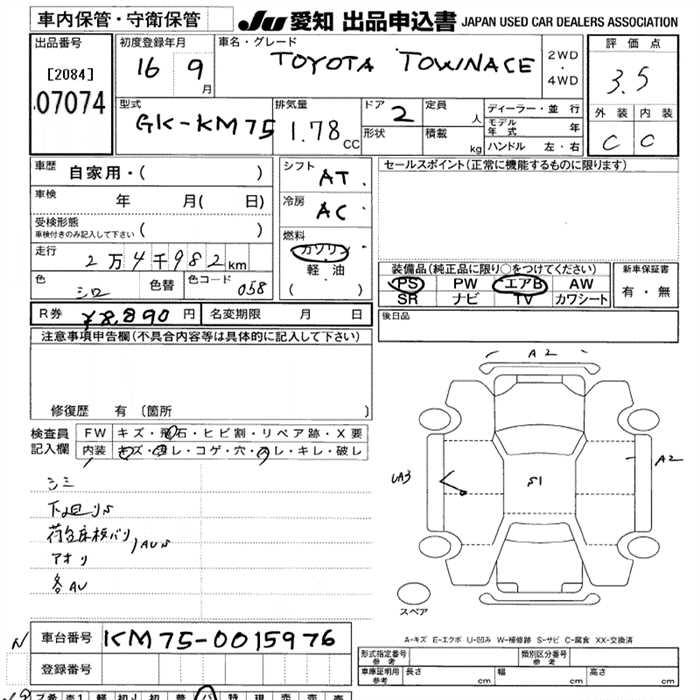 車内保管・守衛保管
JU 愛知 出品申込書 JAPAN USED CAR DEALERS ASSOCIATION
出品番号
[2084]
07074
初度登録年月
16 9
月
車名・グレード
TOYOTA TOWNACE
2WD
・
4WD
評価点
3.5
外装 内装
C C
型式
GK-KM75
排気量
1.78
CC
ドア
2
形状
定員
人
積載
kg
ディーラー・並行
モデル年式 年
ハンドル 左・右
車歴
自家用・( )
車検
年 月( 日)
受検形態
車検付きのみ記入して下さい ( )
走行
2万4千982km
色
シロ
色替
色コード
058
シフト
AT
冷房
AC
燃料
ガソリン
軽・油
( )
セールスポイント(正常に機能するものに限ります)
装備品(純正品に限り○をつけてください)
PS PW エアB AW
SR ナビ TV カワシート
新車保証書
有・無
R券
¥8,890 円
名変期限 月 日
後日品
注意事項申告欄(不具合内容等は具体的に記入して下さい)
修復歴 有 〔箇所 〕
検査員
記入欄
FW キズ・飛石・ヒビ割・リペア跡・X要
内装 キズ・汚レ・コゲ・穴・スレ・キレ・破レ
シミ
アオリ
各AU
A2
UA3
S1
A2
スペア
A-キズ E-エクボ U-凹み W-補修跡 S-サビ C-腐食 XX-交換済
N
車台番号
KM75-0015976
登録番号
形式指定番号
参考
類別区分番号
参考
車庫証明用
参考
長さ cm 幅 cm 高さ cm